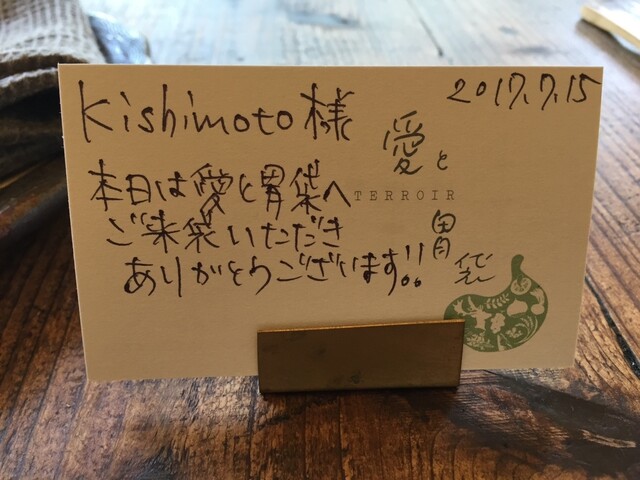 2017.7.15
Kishimoto様
本日は愛と胃袋へ
ご来袋いただき
ありがとうございます!!
愛と
TERROIR
胃
袋